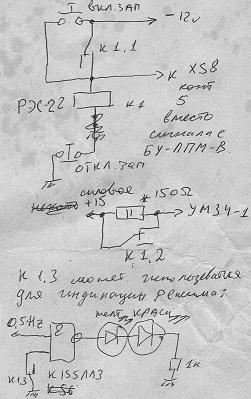 I ВКЛ. ЗАП
-12v
К 1,1
К XS8
конт
5
РЭС-22
К1
вместо
сигнала с
БУ-ЛПМ-В.
ОТКЛ. ЗАП
силовое
+15
* 150Ω
УМЗЧ-1
К 1,2
К 1.3 может использоваться
для индикации режима:
0,5Hz
&
желт
КРАСН
К1.3
К155ЛА3
1к